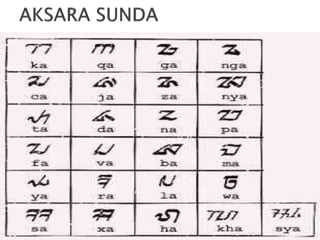 AKSARA SUNDA
ᮊ ᮋ ᮌ ᮍ
ka qa ga nga
ᮎ ᮏ ᮐ ᮑ
ca ja za nya
ᮒ ᮓ ᮔ ᮕ
ta da na pa
ᮖ ᮗ ᮘ ᮙ
fa va ba ma
ᮚ ᮛ ᮜ ᮝ
ya ra la wa
ᮞ ᮟ ᮠ ᮮ ᮯ
sa xa ha kha sya